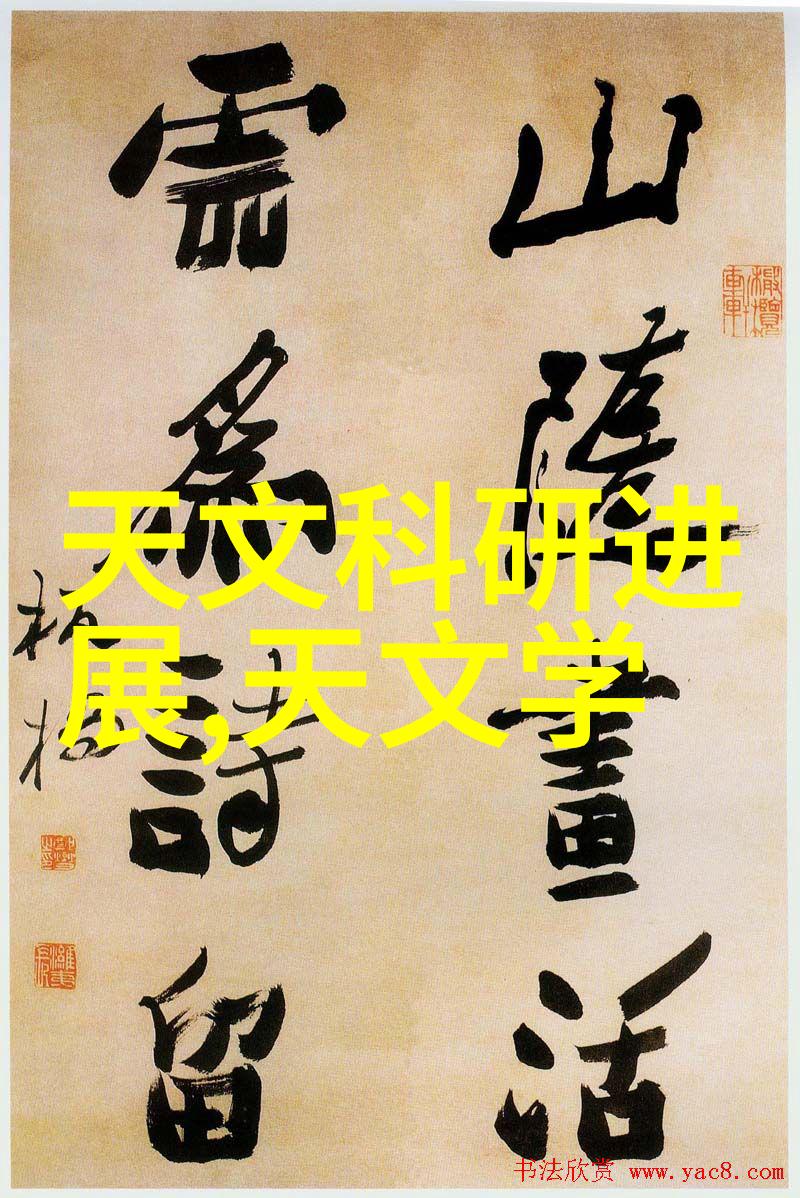 山隨畫活
雲爲詩留
板橋
天文科研进
展,天文学
书法欣赏 www.yac8.com